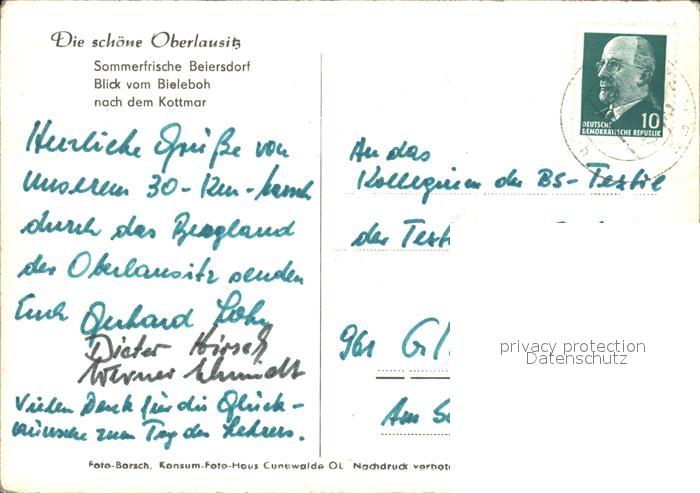 Die schöne Oberlausitz
Sommerfrische Beiersdorf
Blick vom Bieleboh
nach dem Kottmar
10
DEUTSCHE
DEMOKRATISCHE REPUBLIK
Herzliche Grüße von
unserem 30-Km-Marsch
durch das Bergland
der Oberlausitz senden
Euch Gerhard
Dieter Hirsch
Werner Schmidt
Vielen Dank für die Glück-
wünsche zum Tag des Lehrers.
An das
Kollegium der BS-Textil
der Text
961 Gl
Am
privacy protection
Datenschutz
Foto-Barsch, Konsum-Foto-Haus Cunewalde OL Nachdruck verbote